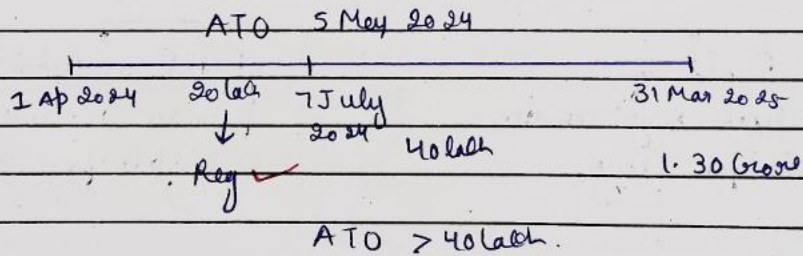 ATO 5 May 2024
1 Ap 2024 20 lakh 7 July 31 Mar 2025
2024
40 lakh
Reg ✓ 1.30 Crore
ATO > 40 lakh.